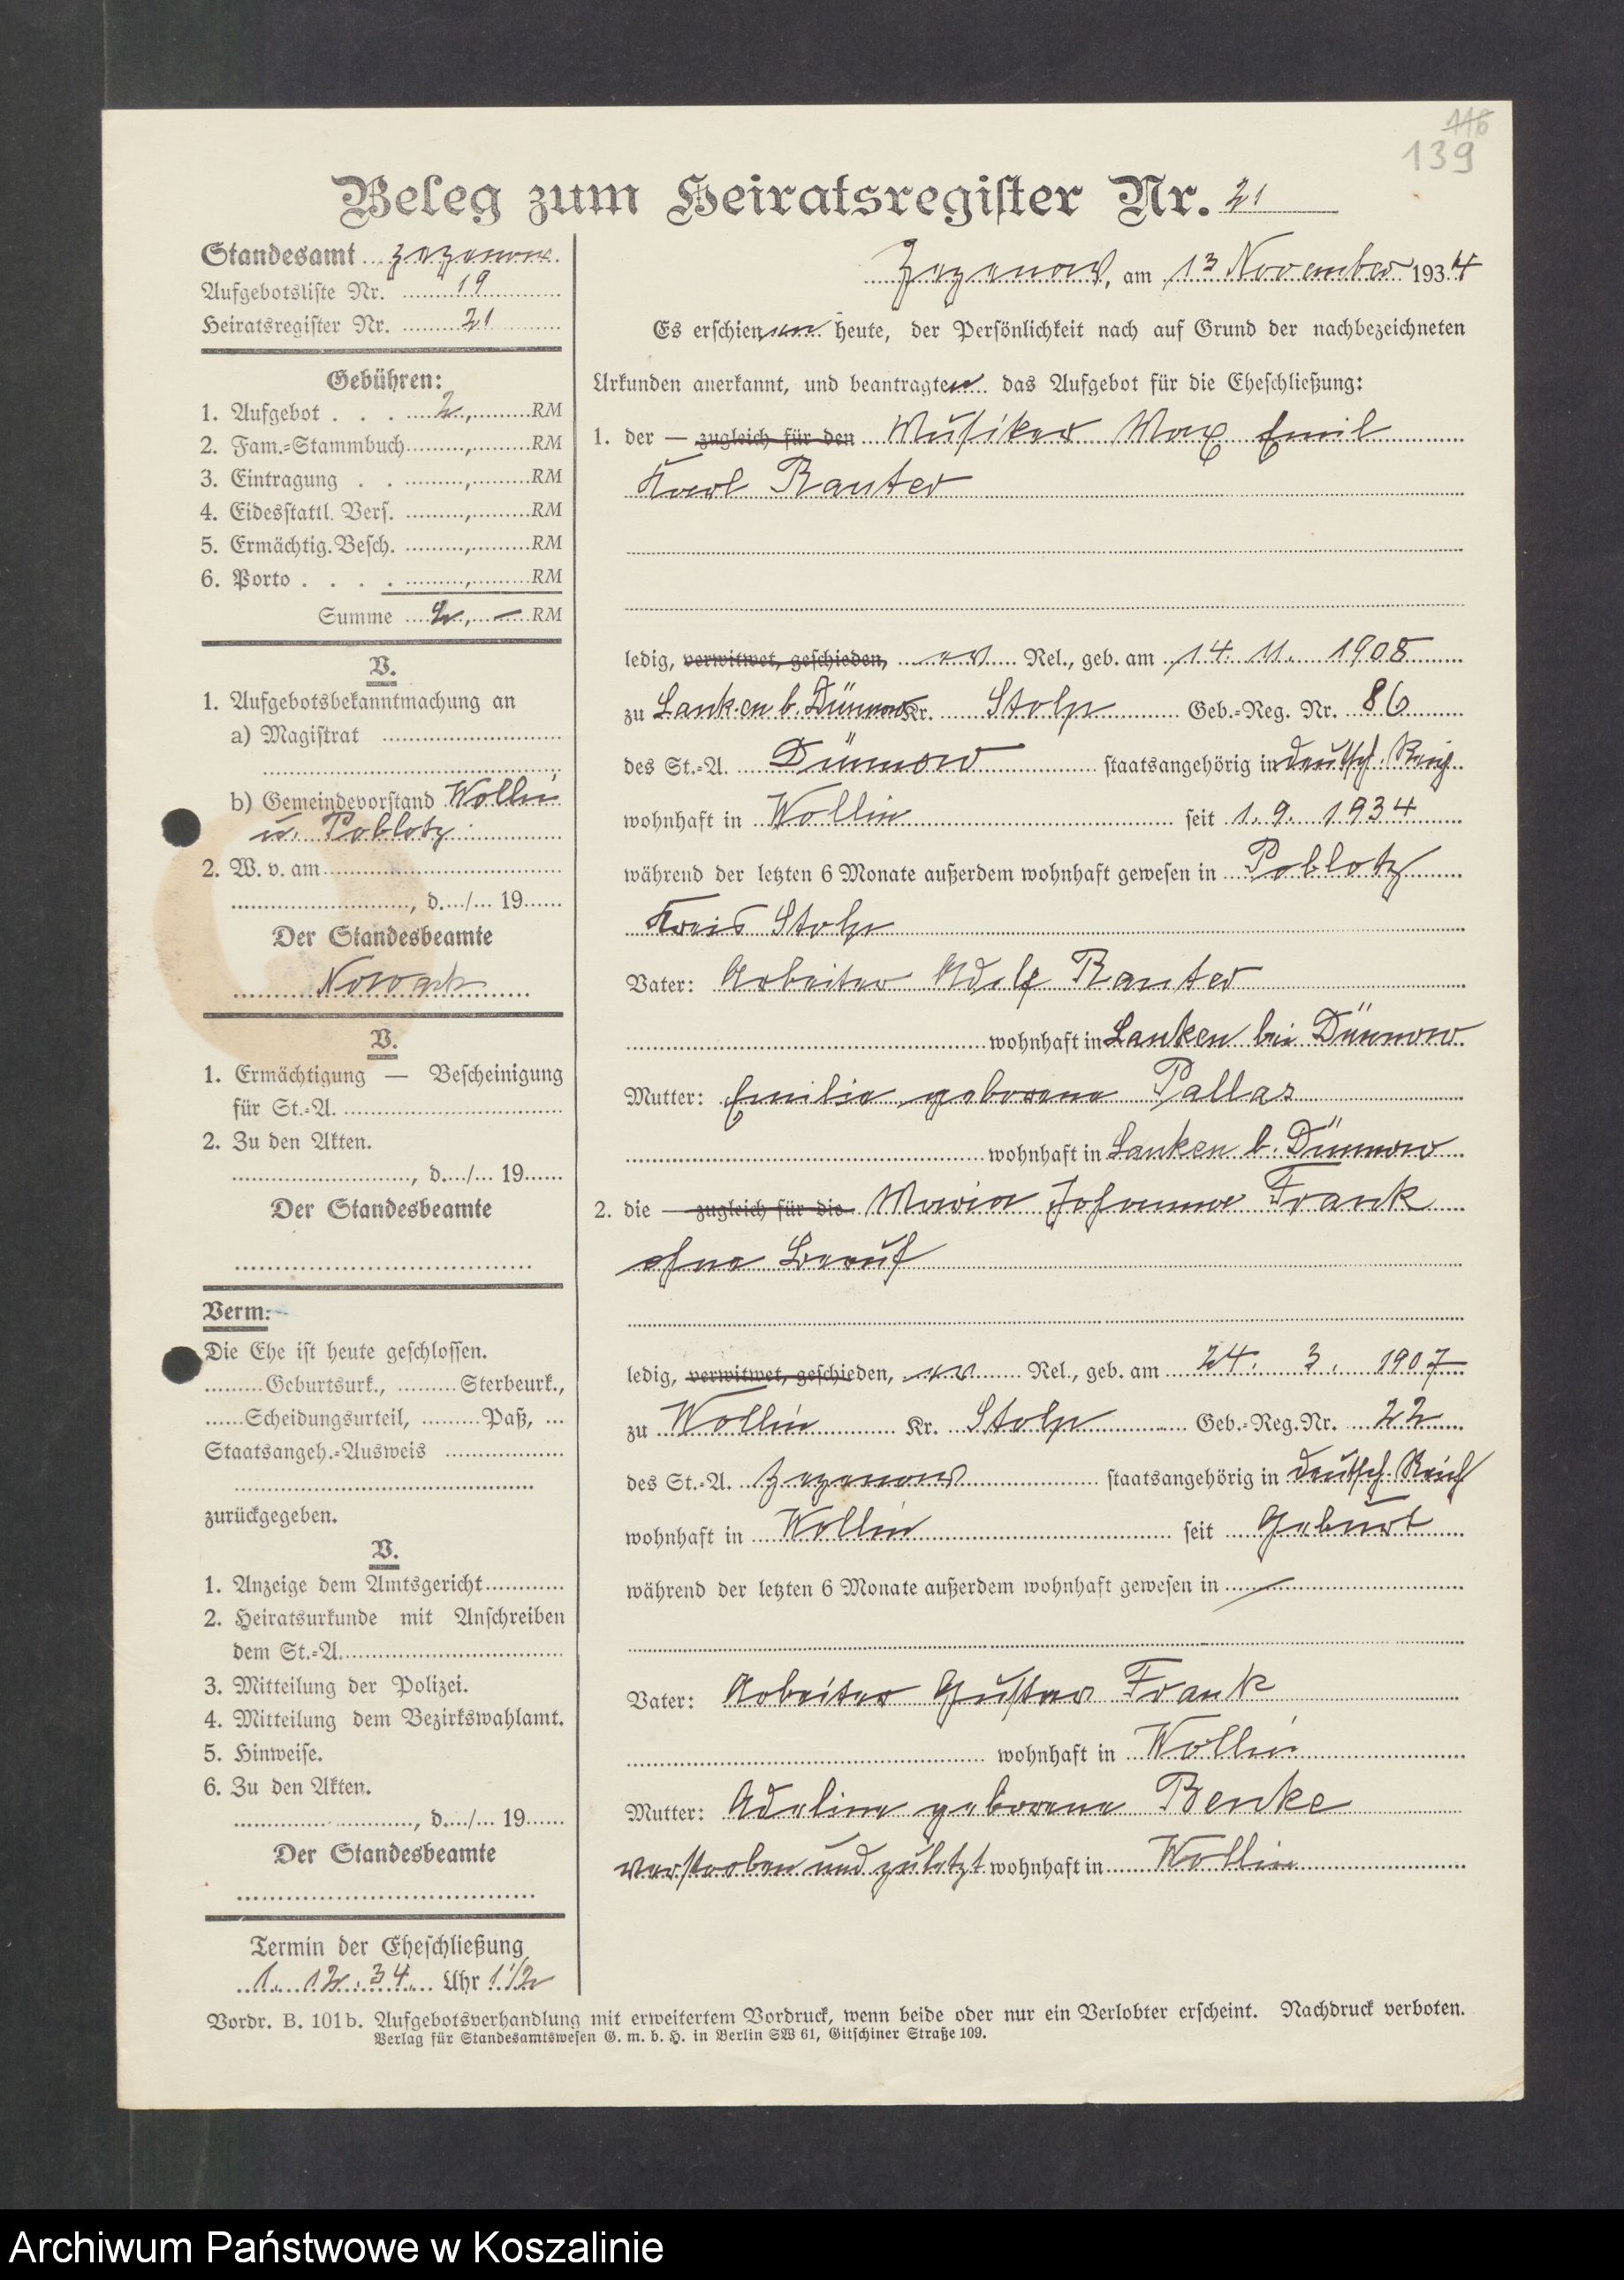 116
139
Beleg zum Heiratsregister Nr. 21
Standesamt Zezenow.
Aufgebotsliste Nr. 19
Heiratsregister Nr. 21
Gebühren:
1. Aufgebot . . . 2,  RM
2. Fam.-Stammbuch , RM
3. Eintragung . . , RM
4. Eidesstattl. Vers. , RM
5. Ermächtig. Besch. , RM
6. Porto . . . . , RM
Summe 2, – RM
V.
1. Aufgebotsbekanntmachung an
a) Magistrat
b) Gemeindevorstand Wollin
u. Poblotz
2. W. v. am
, d. / 19
Der Standesbeamte
Nowack
V.
1. Ermächtigung — Bescheinigung
für St.-A.
2. Zu den Akten.
, d. / 19
Der Standesbeamte
Verm:
Die Ehe ist heute geschlossen.
Geburtsurk., Sterbeurk.,
Scheidungsurteil, Paß,
Staatsangeh.-Ausweis
zurückgegeben.
V.
1. Anzeige dem Amtsgericht
2. Heiratsurkunde mit Anschreiben
dem St.-A.
3. Mitteilung der Polizei.
4. Mitteilung dem Bezirkswahlamt.
5. Hinweise.
6. Zu den Akten.
, d. / 19
Der Standesbeamte
Termin der Eheschließung
1. 12. 34. Uhr 1 1/2
Zezenow, am 13 November 1934
Es erschienen heute, der Persönlichkeit nach auf Grund der nachbezeichneten
Urkunden anerkannt, und beantragten das Aufgebot für die Eheschließung:
1. der — zugleich für den Musiker Max Emil
Karl Rauter
ledig, verwitwet, geschieden, ev Rel., geb. am 14. 11. 1908
zu Lanken b. Dünnow Kr. Stolp Geb.-Reg. Nr. 86
des St.-A. Dünnow staatsangehörig in deutsch. Reich
wohnhaft in Wollin seit 1. 9. 1934
während der letzten 6 Monate außerdem wohnhaft gewesen in Poblotz
Kreis Stolp
Vater: Arbeiter Adolf Rauter
wohnhaft in Lanken bei Dünnow.
Mutter: Emilie geborene Pallas
wohnhaft in Lanken b. Dünnow
2. die — zugleich für die Maria Johanne Frank
ohne Beruf
ledig, verwitwet, geschieden, ev Rel., geb. am 24. 3. 1907
zu Wollin Kr. Stolp Geb.-Reg. Nr. 22
des St.-A. Zezenow staatsangehörig in deutsch. Reich
wohnhaft in Wollin seit Geburt
während der letzten 6 Monate außerdem wohnhaft gewesen in /
Vater: Arbeiter Gustav Frank
wohnhaft in Wollin
Mutter: Adeline geborene Benke
verstorben und zuletzt wohnhaft in Wollin
Vordr. B. 101b. Aufgebotsverhandlung mit erweitertem Vordruck, wenn beide oder nur ein Verlobter erscheint. Nachdruck verboten.
Verlag für Standesamtswesen G. m. b. H. in Berlin SW 61, Gitschiner Straße 109.
Archiwum Państwowe w Koszalinie